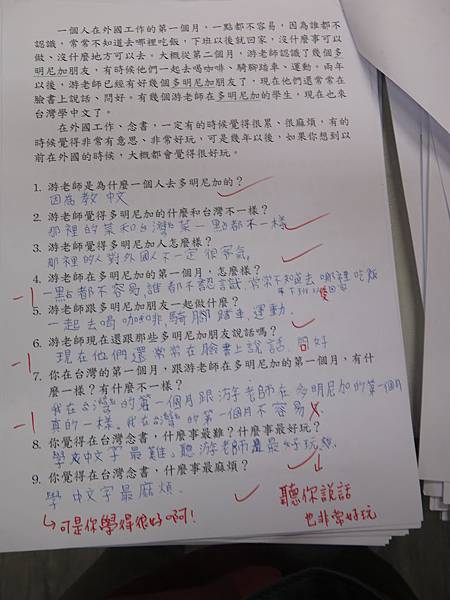 一個人在外國工作的第一個月，一點都不容易，因為誰都不
認識，常常不知道去哪裡吃飯，下班以後就回家，沒什麼事可以
做、沒什麼地方可以去。大概從第二個月，游老師認識了幾個多
明尼加朋友，有時候他們一起去喝咖啡、騎腳踏車、運動。兩年
以後，游老師已經有好幾個多明尼加朋友了，現在他們還常常在
臉書上說話、問好。有幾個游老師在多明尼加的學生，現在也來
台灣學中文了。
在外國工作、念書，一定有的時候覺得很累、很麻煩，有的
時候覺得非常有意思、非常好玩，可是幾年以後，如果你想到以
前在外國的時候，大概都會覺得很好玩。
1. 游老師是為什麼一個人去多明尼加的？
因為教中文
2. 游老師覺得多明尼加的什麼和台灣不一樣？
那裡的菜和台灣菜一點都不一樣
3. 游老師覺得多明尼加人怎麼樣？
那裡的人對外國人不一定很客氣
4. 游老師在多明尼加的第一個月，怎麼樣？
-1 一點都不容易,誰都不認識,常常不知道去哪裡吃飯
5. 游老師跟多明尼加朋友一起做什麼？
一起去喝咖啡,騎腳踏車,運動.
6. 游老師現在還跟那些多明尼加朋友說話嗎？
-1 現在他們還常常在臉書上說話 問好
7. 你在台灣的第一個月，跟游老師在多明尼加的第一個月，有什
麼一樣？有什麼不一樣？
我在台灣的第一個月跟游老師在多明尼加的第一個月
-1 真的一樣.我在台灣的第一個月不容易
8. 你覺得在台灣念書，什麼事最難？什麼事最好玩？
學中文字最難,聽游老師最好玩
9. 你覺得在台灣念書，什麼事最麻煩？
學中文字最麻煩.
可是你學得很好啊!
聽你說話
也非常好玩